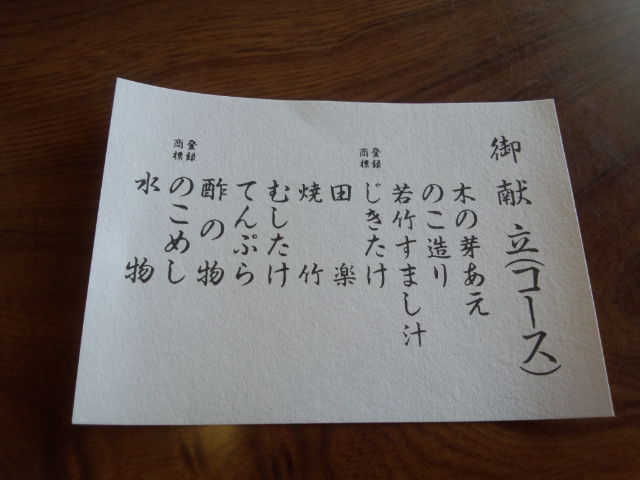 御献立(コース)
木の芽あえ
のこ造り
若竹すまし汁
登録商標
じきたけ
田楽
焼竹
むしたけ
てんぷら
酢の物
登録商標
のこめし
水物